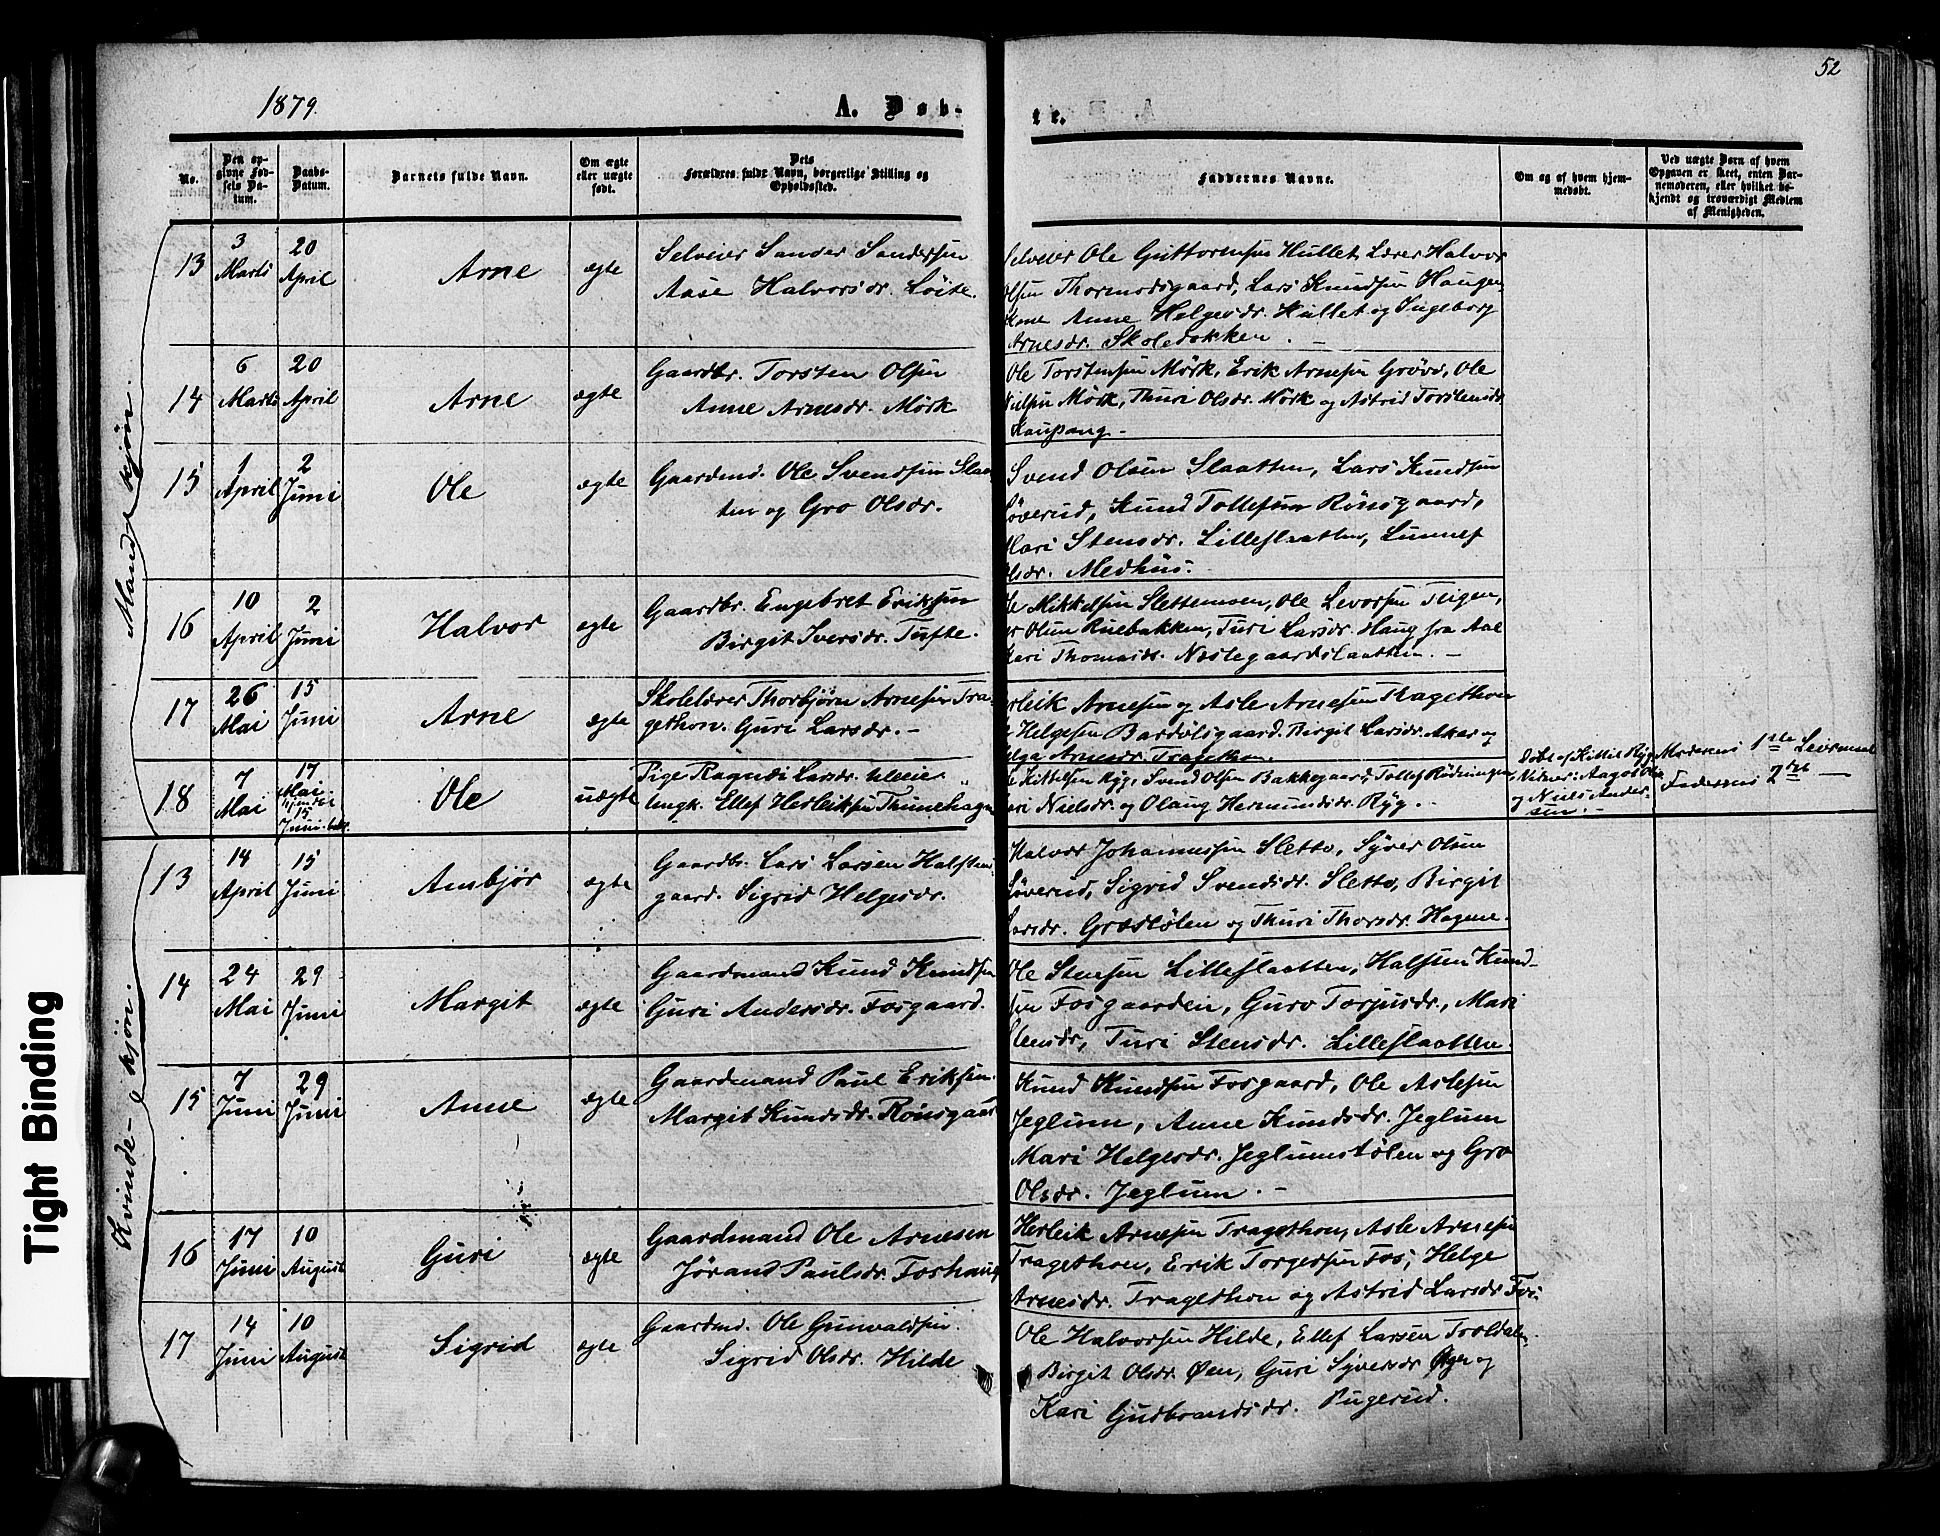 52
1879.
A. Døb-
te.
No.
Den op-
givne Fød-
sels Da-
tum.
Daabs-
Datum.
Barnets fulde Navn.
Om ægte
eller uægte
født.
Dets
Forældres fulde Navn, borgerlige Stilling og
Opholdssted.
Faddernes Navne.
Om og af hvem hjem-
medøbt.
Ved uægte Børn af hvem
Opgaven er skeet, enten Bar-
nemoderen, eller hvilket be-
kjendt og troværdigt Medlem
af Menigheden.
Mandkjøn.
13
3
Marts
20
April
Arne
ægte
Selveier Sander Sandersen
Aase Halvorsdr. Löite.
Selveier Ole Guttormsen Hullet, Lærer Halvor
Olsen Thormodsgaard, Lars Knudsen Haugen,
Kone Anne Helgesdr. Hullet og Ingeborg
Arnesdr. Skoledokken. -
14
6
Marts
20
April
Arne
ægte
Gaardbr. Torsten Olsen
Anne Arnesdr. Mörk
Ole Torstensen Mörk, Erik Arnesen Grövo, Ole
Nielsen Mörk, Thuri Olsdr. Mörk og Astrid Torstensdr
Kaupang -
15
1
April
2
Juni
Ole
ægte
Gaardmd. Ole Svendsen Slaat-
ten og Gro Olsdr.
Svend Olsen Slaatten, Lars Knudsen
Söverud, Knud Tollefsen Rönsgaard,
Mari Stensdr. Lilleslaatten, Lunnef
Olsdr. Medhus. -
16
10
April
2
Juni
Halvor
ægte
Gaardbr. Engebret Eriksen
Birgit Iversdr. Tufte.
Ole Mikkelsen Slettemoen, Ole Levorsen Teigen,
Olsen Ruebakken, Turi Larsdr. Haug fra Aal
Kari Thomasdr. Næstegaardslaatten. -
17
26
Mai
15
Juni
Arne
ægte
Skolelærer Thorbjörn Arnesen Tra-
gethon. Guri Larsdr. -
Herleik Arnesen og Asle Arnesen Tragethon
Helgesen Bardölsgaard. Birgit Larsdr. Aker og
Helga Arnesdr. Tragethon.
18
7
Mai
17
Mai
hjemdöt
15
Juni bekr.
Ole
uægte
Pige Ragndi Larsdr.
Ungk. Ellef Herleiksen Thunehagen
Ole Kittelsen Ryg, Svend Olsen Bakkegaard, Tollef Rödningen
Kari Nielsdr. og Olaug Hermundsdr. Ryg. -
Döbt af Kittil Ryg
Vidner: Aagot Ols
og Niels Ander-
sen. -
Moderens 1ste Leiermaal
Faderens 2det —
Kvinde-kjøn.
13
14
April
15
Juni
Ambjör
ægte
Gaardbr. Lars Larsen Halstens-
gaard. Sigrid Helgesdr.
Halvor Johannessen Sletto, Syver Olsen
Söverud, Sigrid Svendsdr. Sletto, Birgit
Larsdr. Græstölen og Thuri Thorsdr. Hagene.
14
24
Mai
29
Juni
Margit
ægte
Gaardmand Knud Knudsen
Guri Andersdr. Fosgaard.
Ole Stensen Lilleslaatten, Halsten Knud-
sen Fosgaarden, Guro Torjusdr., Mari
Stensdr, Turi Stensdr. Lilleslaatten.
15
7
Juni
29
Juni
Anne
ægte
Gaardmand Paul Eriksen.
Margit Knudsdr. Rönsgaard
Knud Knudsen Fosgaard, Ole Aslesen
Jeglum, Anne Knudsdr. Jeglum
Mari Helgesdr. Jeglumstölen og Gro
Olsdr. Jeglum. -
16
17
Juni
10
August
Guri
ægte
Gaardmand Ole Arnesen
Jörand Paulsdr. Foshaug
Herleik Arnesen Tragethon, Asle Arnesen
Tragethon, Erik Torgersen Fos, Helge
Arnesdr. Tragethon og Astrid Larsdr Fos.
17
14
Juni
10
August
Sigrid
ægte
Gaardmd. Ole Gunvaldsen.
Sigrid Olsdr. Hilde
Ole Halvorsen Hilde, Ellef Larsen Troldalen.
Birgit Olsdr. Øen, Guri Syversdr Øen og
Kari Gudbrandsdr. Pugerud.
Tight Binding